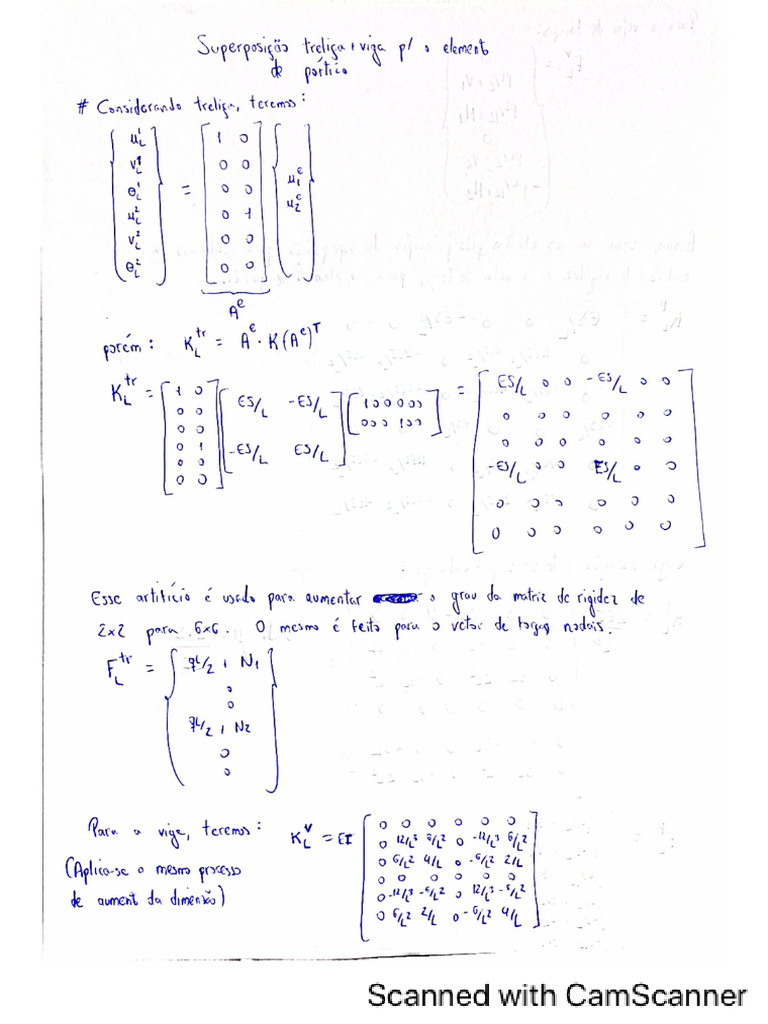 Superposição treliça + viga p/ o element
de pórtico
# Considerando treliça, teremos:
{u_L^1 v_L^1 θ_L^1 u_L^2 v_L^2 θ_L^2} = [1 0; 0 0; 0 0; 0 1; 0 0; 0 0] {u_1^e u_2^e}
A^e
porém: K_L^tr = A^e · K (A^e)^T
K_L^tr = [1 0; 0 0; 0 0; 0 1; 0 0; 0 0] [ES/L -ES/L; -ES/L ES/L] [1 0 0 0 0 0; 0 0 0 1 0 0] = [ES/L 0 0 -ES/L 0 0; 0 0 0 0 0 0; 0 0 0 0 0 0; -ES/L 0 0 ES/L 0 0; 0 0 0 0 0 0; 0 0 0 0 0 0]
Esse artifício é usado para aumentar o grau da matriz de rigidez de
2x2 para 6x6. O mesmo é feito para o vetor de forças nodais.
F_L^tr = {qL/2 + N1; 0; 0; qL/2 + N2; 0; 0}
Para a viga, teremos: K_L^v = EI [0 0 0 0 0 0; 0 12/L³ 6/L² 0 -12/L³ 6/L²; 0 6/L² 4/L 0 -6/L² 2/L; 0 0 0 0 0 0; 0 -12/L³ -6/L² 0 12/L³ -6/L²; 0 6/L² 2/L 0 -6/L² 4/L]
(Aplica-se o mesmo processo
de aument da dimensão)
Scanned with CamScanner